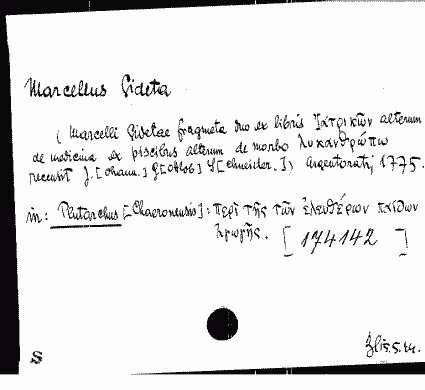 Marcellus Sideta
( Marcelli Sidetae fragmeta duo ex libris Ἰατρικῶν alterum
de medicina ex piscibus alterum de morbo λυκανθρώπω
recensit J.[ohann.] G[ottlob] S[chneider.]) Argentorati, 1775.
in: Plutarchus [Chaeronensis]: περὶ τῆς τῶν ἐλευθέρων παίδων
ἀγωγῆς.
[ 174142 ]
S